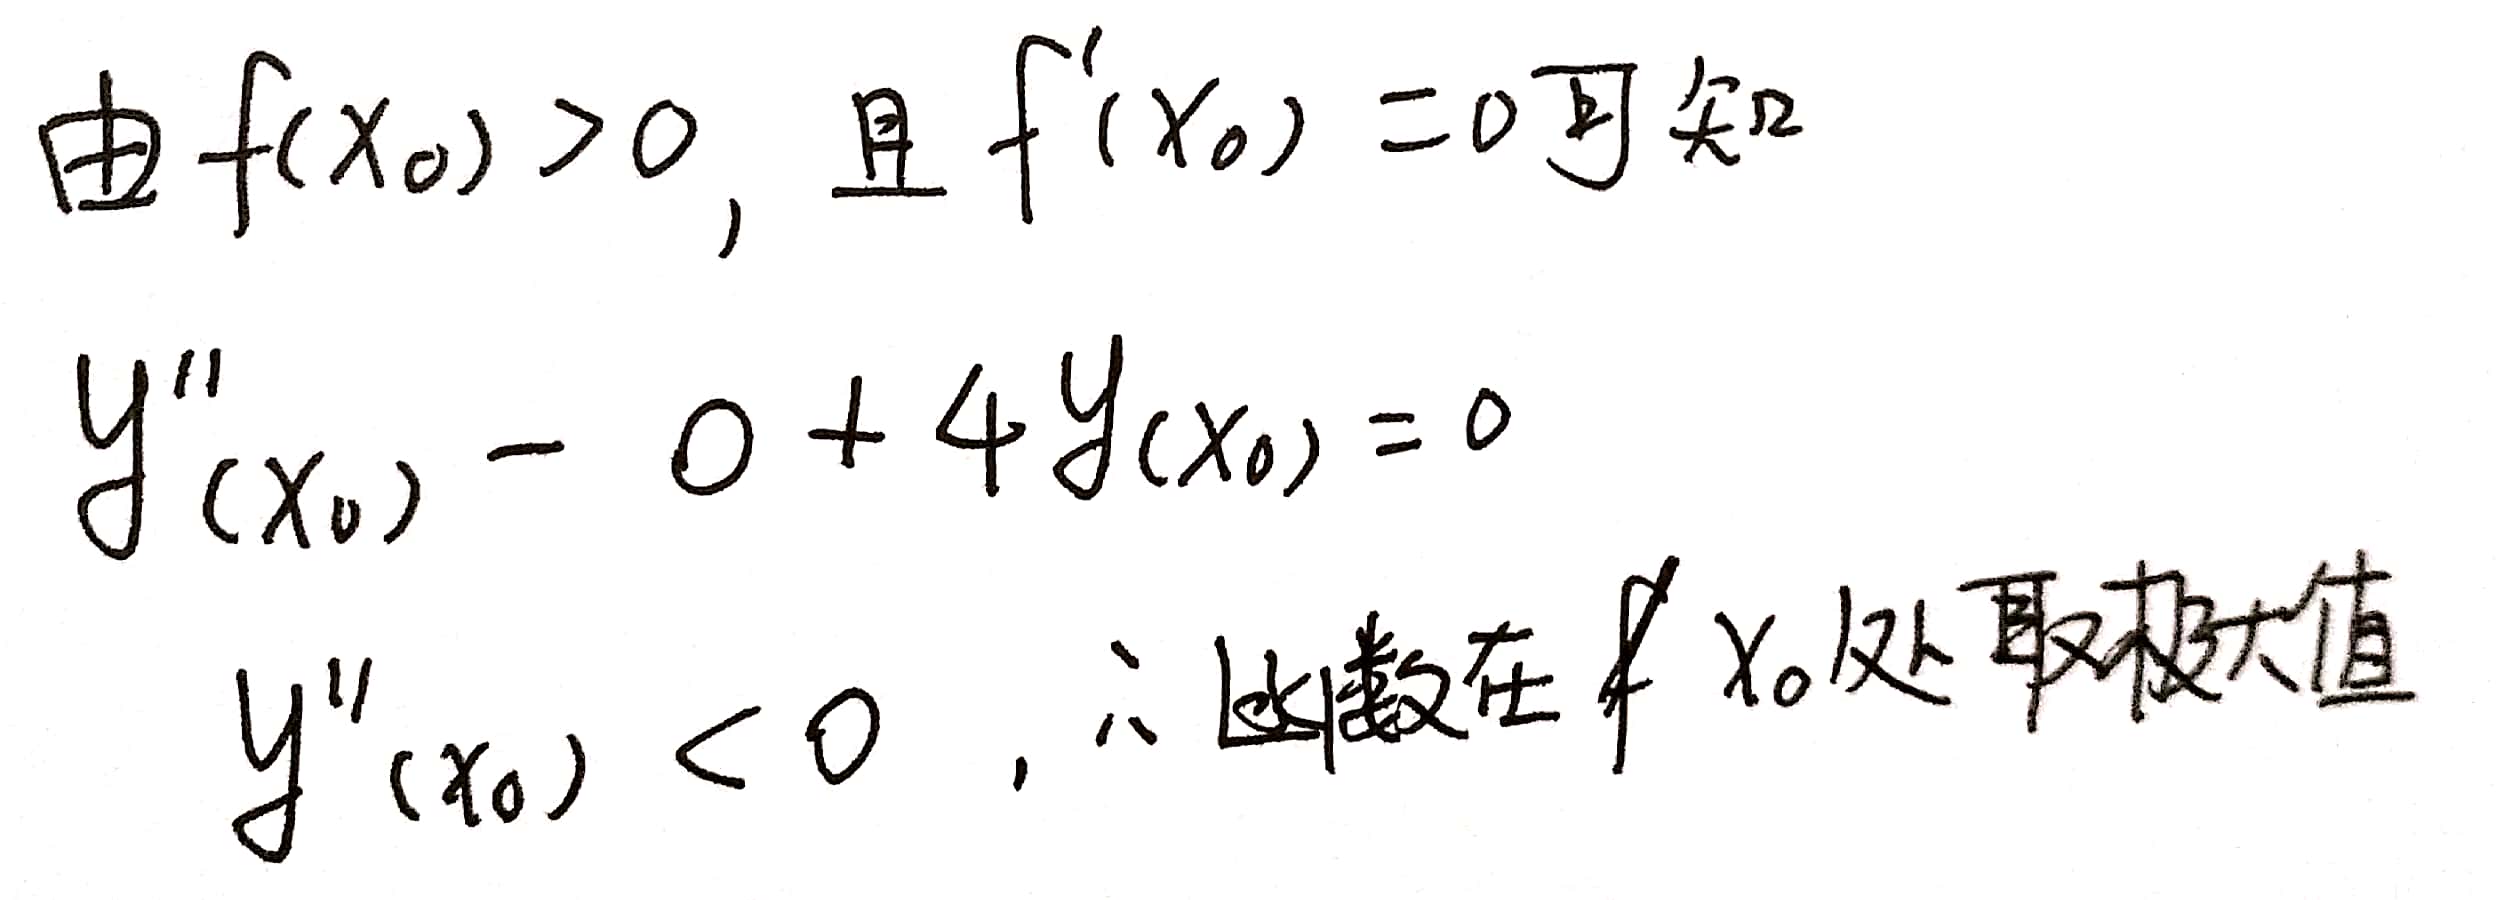 由f(x₀)>0,且f'(x₀)=0可知
y''(x₀)-0+4y(x₀)=0
y''(x₀)<0,∴函数在 x₀处取极大值